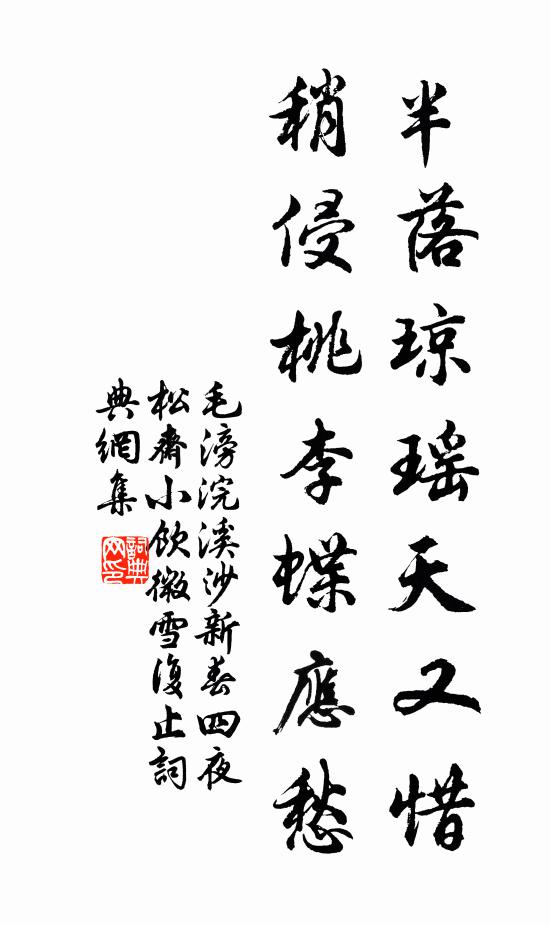 半落琼瑶天又惜
稍侵桃李蝶應愁
毛滂浣溪沙新春四夜
松齋小飲微雪復止詞
典網集
詞典網印